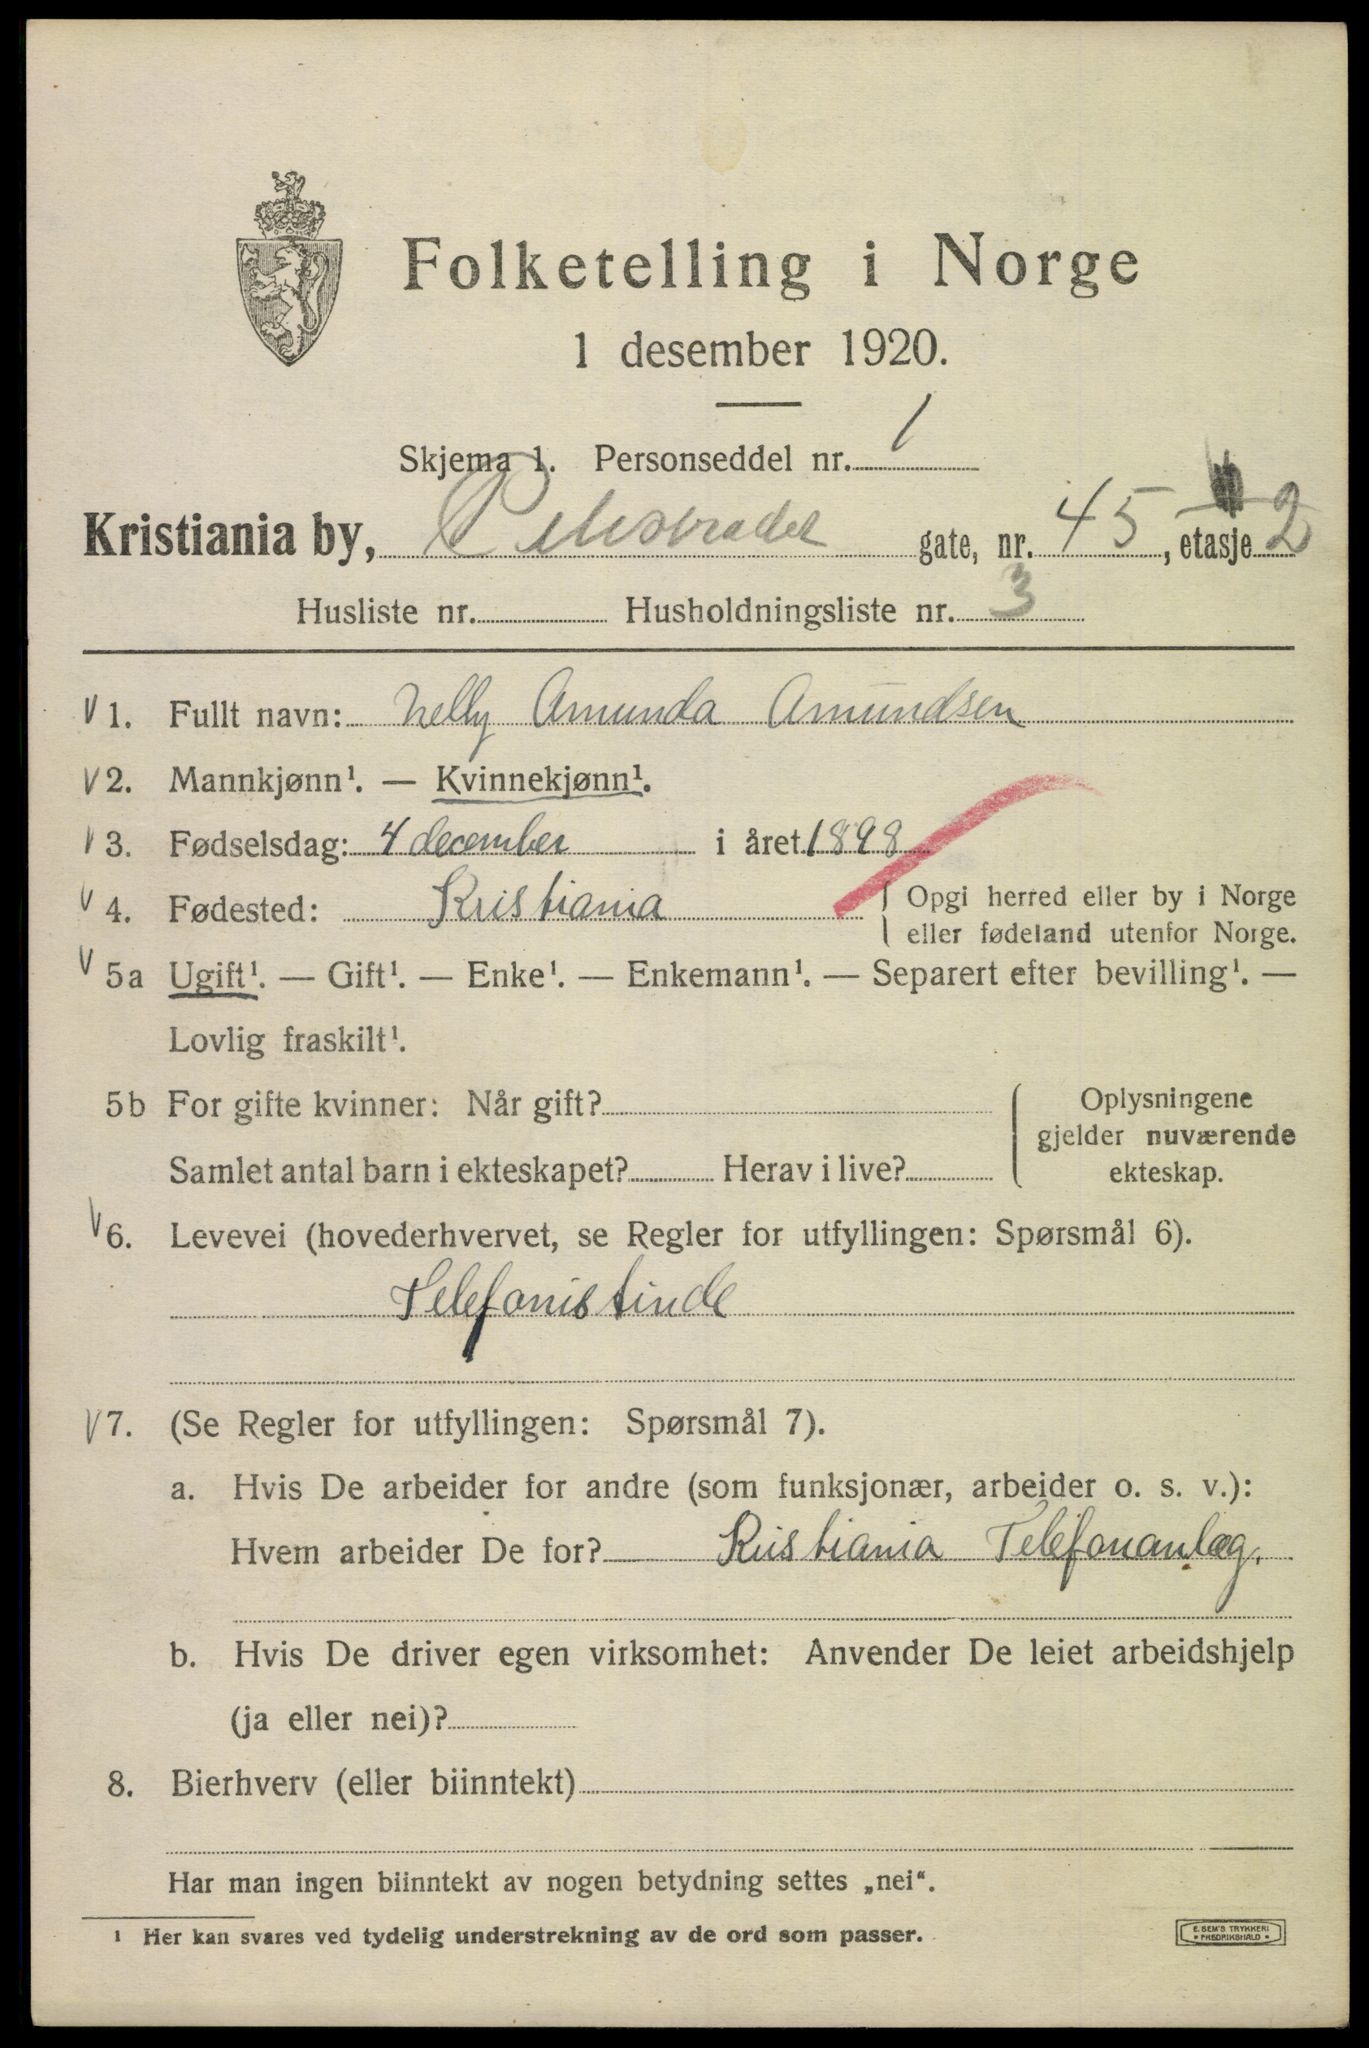 Folketelling i Norge
1 desember 1920.
Skjema 1. Personseddel nr. 1
Kristiania by, Pilestrædet gate, nr. 45, etasje 2
Husliste nr. Husholdningsliste nr. 3
V 1. Fullt navn: Nelly Amunda Amundsen
V 2. Mannkjønn¹. — Kvinnekjønn¹.
V 3. Fødselsdag: 4 december i året 1898
V 4. Fødested: Kristiania { Opgi herred eller by i Norge
eller fødeland utenfor Norge.
V 5a Ugift¹. — Gift¹. — Enke¹. — Enkemann¹. — Separert efter bevilling¹. —
Lovlig fraskilt¹.
5b For gifte kvinner: Når gift?
Samlet antal barn i ekteskapet? Herav i live?
Oplysningene
gjelder nuværende
ekteskap.
V 6. Levevei (hovederhvervet, se Regler for utfyllingen: Spørsmål 6).
Telefonistinde
V 7. (Se Regler for utfyllingen: Spørsmål 7).
a. Hvis De arbeider for andre (som funksjonær, arbeider o. s. v.):
Hvem arbeider De for? Kristiania Telefonanlæg.
b. Hvis De driver egen virksomhet: Anvender De leiet arbeidshjelp
(ja eller nei)?
8. Bierhverv (eller biinntekt)
Har man ingen biinntekt av nogen betydning settes „nei“.
¹ Her kan svares ved tydelig understrekning av de ord som passer.
E. SEM'S TRYKKERI
• FREDRIKSHALD •